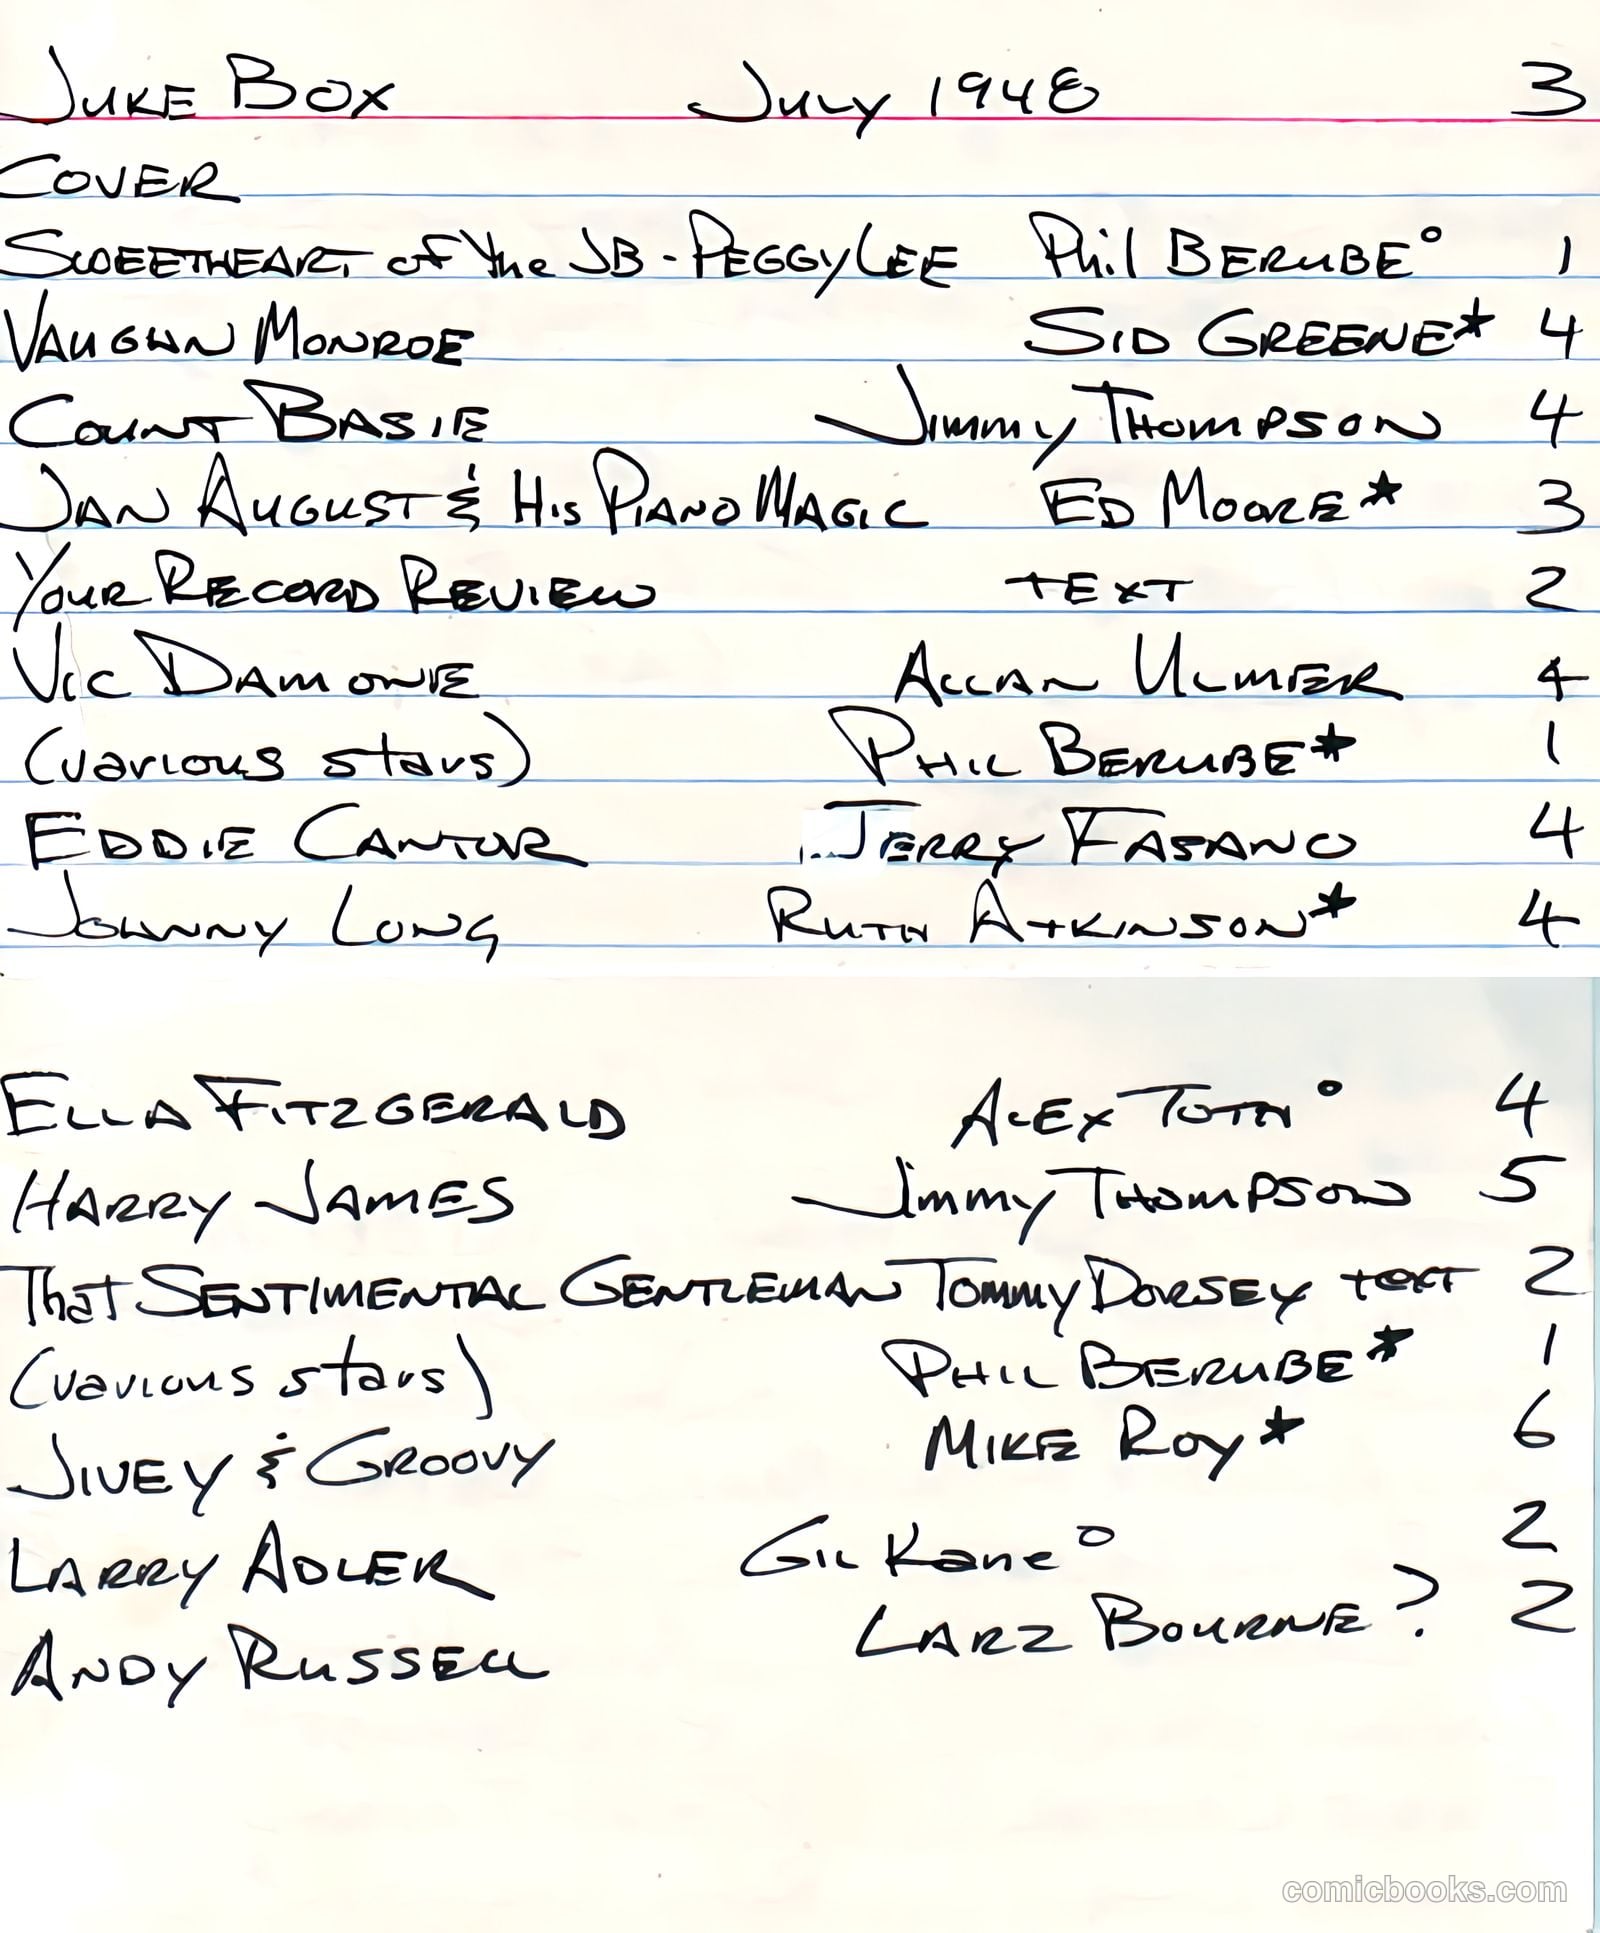 Juke Box July 1948 3
Cover
Sweetheart of the JB - Peggy Lee Phil Berube° 1
Vaughn Monroe Sid Greene* 4
Count Basie Jimmy Thompson 4
Jan August & His Piano Magic Ed Moore* 3
Your Record Review text 2
Vic Damone Allan Ulmer 4
(various stars) Phil Berube* 1
Eddie Cantor Jerry Fasano 4
Johnny Long Ruth Atkinson* 4
Ella Fitzgerald Alex Toth° 4
Harry James Jimmy Thompson 5
That Sentimental Gentleman Tommy Dorsey text 2
(various stars) Phil Berube* 1
Jivey & Groovy Mike Roy* 6
Larry Adler Gil Kane° 2
Andy Russell Larz Bourne? 2
comicbooks.com